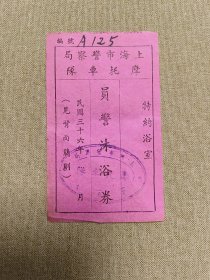 編號 A125
上海市警察局
摩托車隊
特約浴室
員警沐浴券
民國三十六年 月